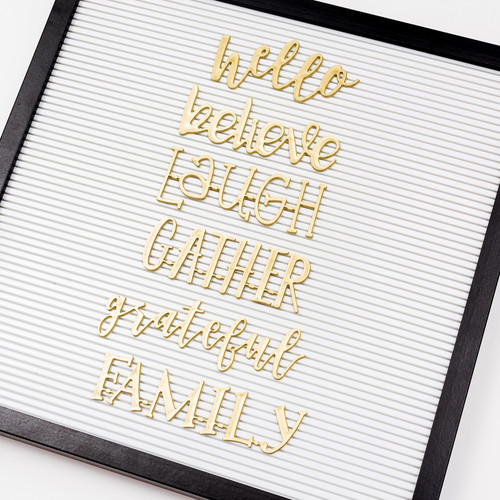 hello
believe
LaUGH
GATHER
grateful
FAMILy